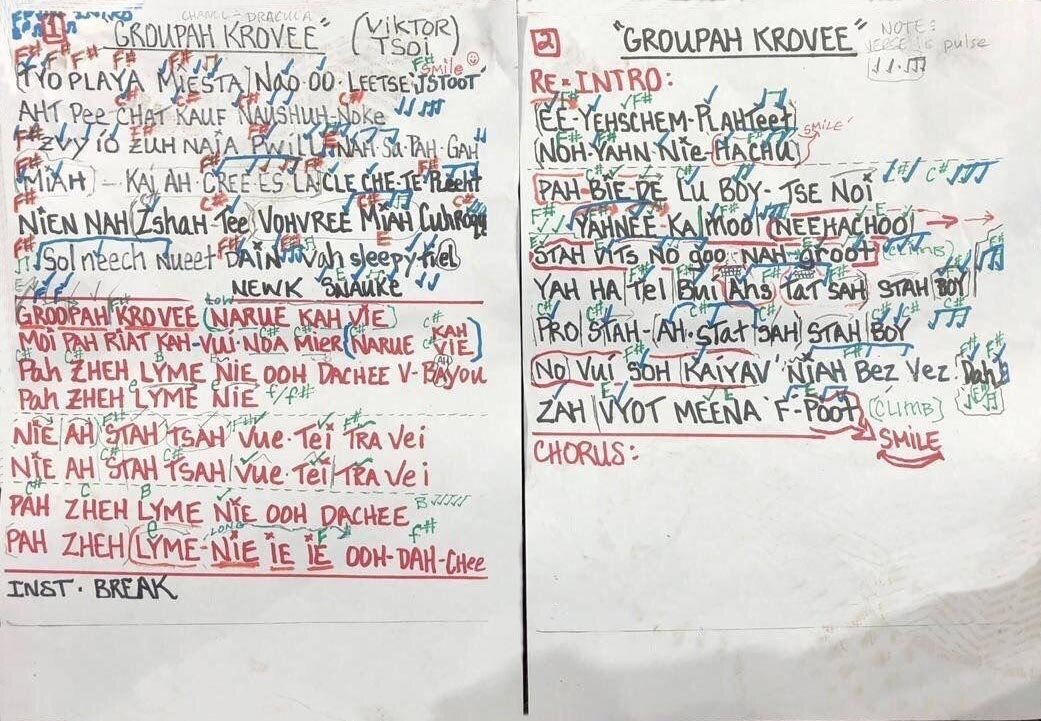 1
CHANEL = DRACULA
"GROUPAH KROVEE" (VIKTOR TSOI)
F# F# F# F# F# smile
(TYO PLAYA MIESTA) NAO-OO-LEETSE 'JSTOOT'
C# C# C#
AHT Pee CHAT KAUF NAUSHUH-NOKE
F# F# F#
ZVY IO ZUH NAJA PWILL NAH-Sa-PAH-GAH
F# F#
(MIAH) - KAJ AH-CREE-ES LA CLE CHE-TE-
F# C# C#
NIEN NAH (ZshaH-Tee) VOHVREE MIAH
F# E
Sol neech nueet DAIN vah sleepy-
NEWK SNAUKE
F# LOW
GROOPAH KROVEE (NARUE KAH VIE)
C# C# C#
MOI PAH RIAT KAH-VUI-NDA MIER (NARUE KAH VIE)
C# C# B
Pah ZHEH LYME NIE OOH DACHEE V-BAYOU
e f/f#
Pah ZHEH LYME NIE
F# F#
NIE AH STAH TSAH VUE-TEI TRA Vei
C# C#
NIE AH STAH TSAH VUE-TEI TRA Vei
C# C B
PAH ZHEH LYME NIE OOH DACHEE B
e LONG F# f#
PAH ZHEH (LYME-NIE IE IE OOH-DAH-CHee
INST. BREAK
2
"GROUPAH KROVEE"
NOTE: VERSE is pulse
RE-INTRO:
F#
(EE-YEHSCHEM-PLAHTeet)
F# F# SMILE
(NOH-YAHN Nie-HACHU)
F# C#
PAH-BIE-DE LU BOY-TSE NOI
F# F# F# E
YAHNEE-KA MOOI NEEHACHOO
STAH VITS NO goo NAH-groot (CLIMB)
F#
YAH HA Tel Bui Ans Tat SAH STAH BOY
C# C# C# C#
PRO STAH-(AH-Stat SAH) STAH BOY
F# F# F#
(NO) VUI SOH KAIYAV' NIAH Bez Vez. Dah
E E
ZAH VYOT MEENA 'F-POOT (CLIMB)
SMILE
CHORUS: